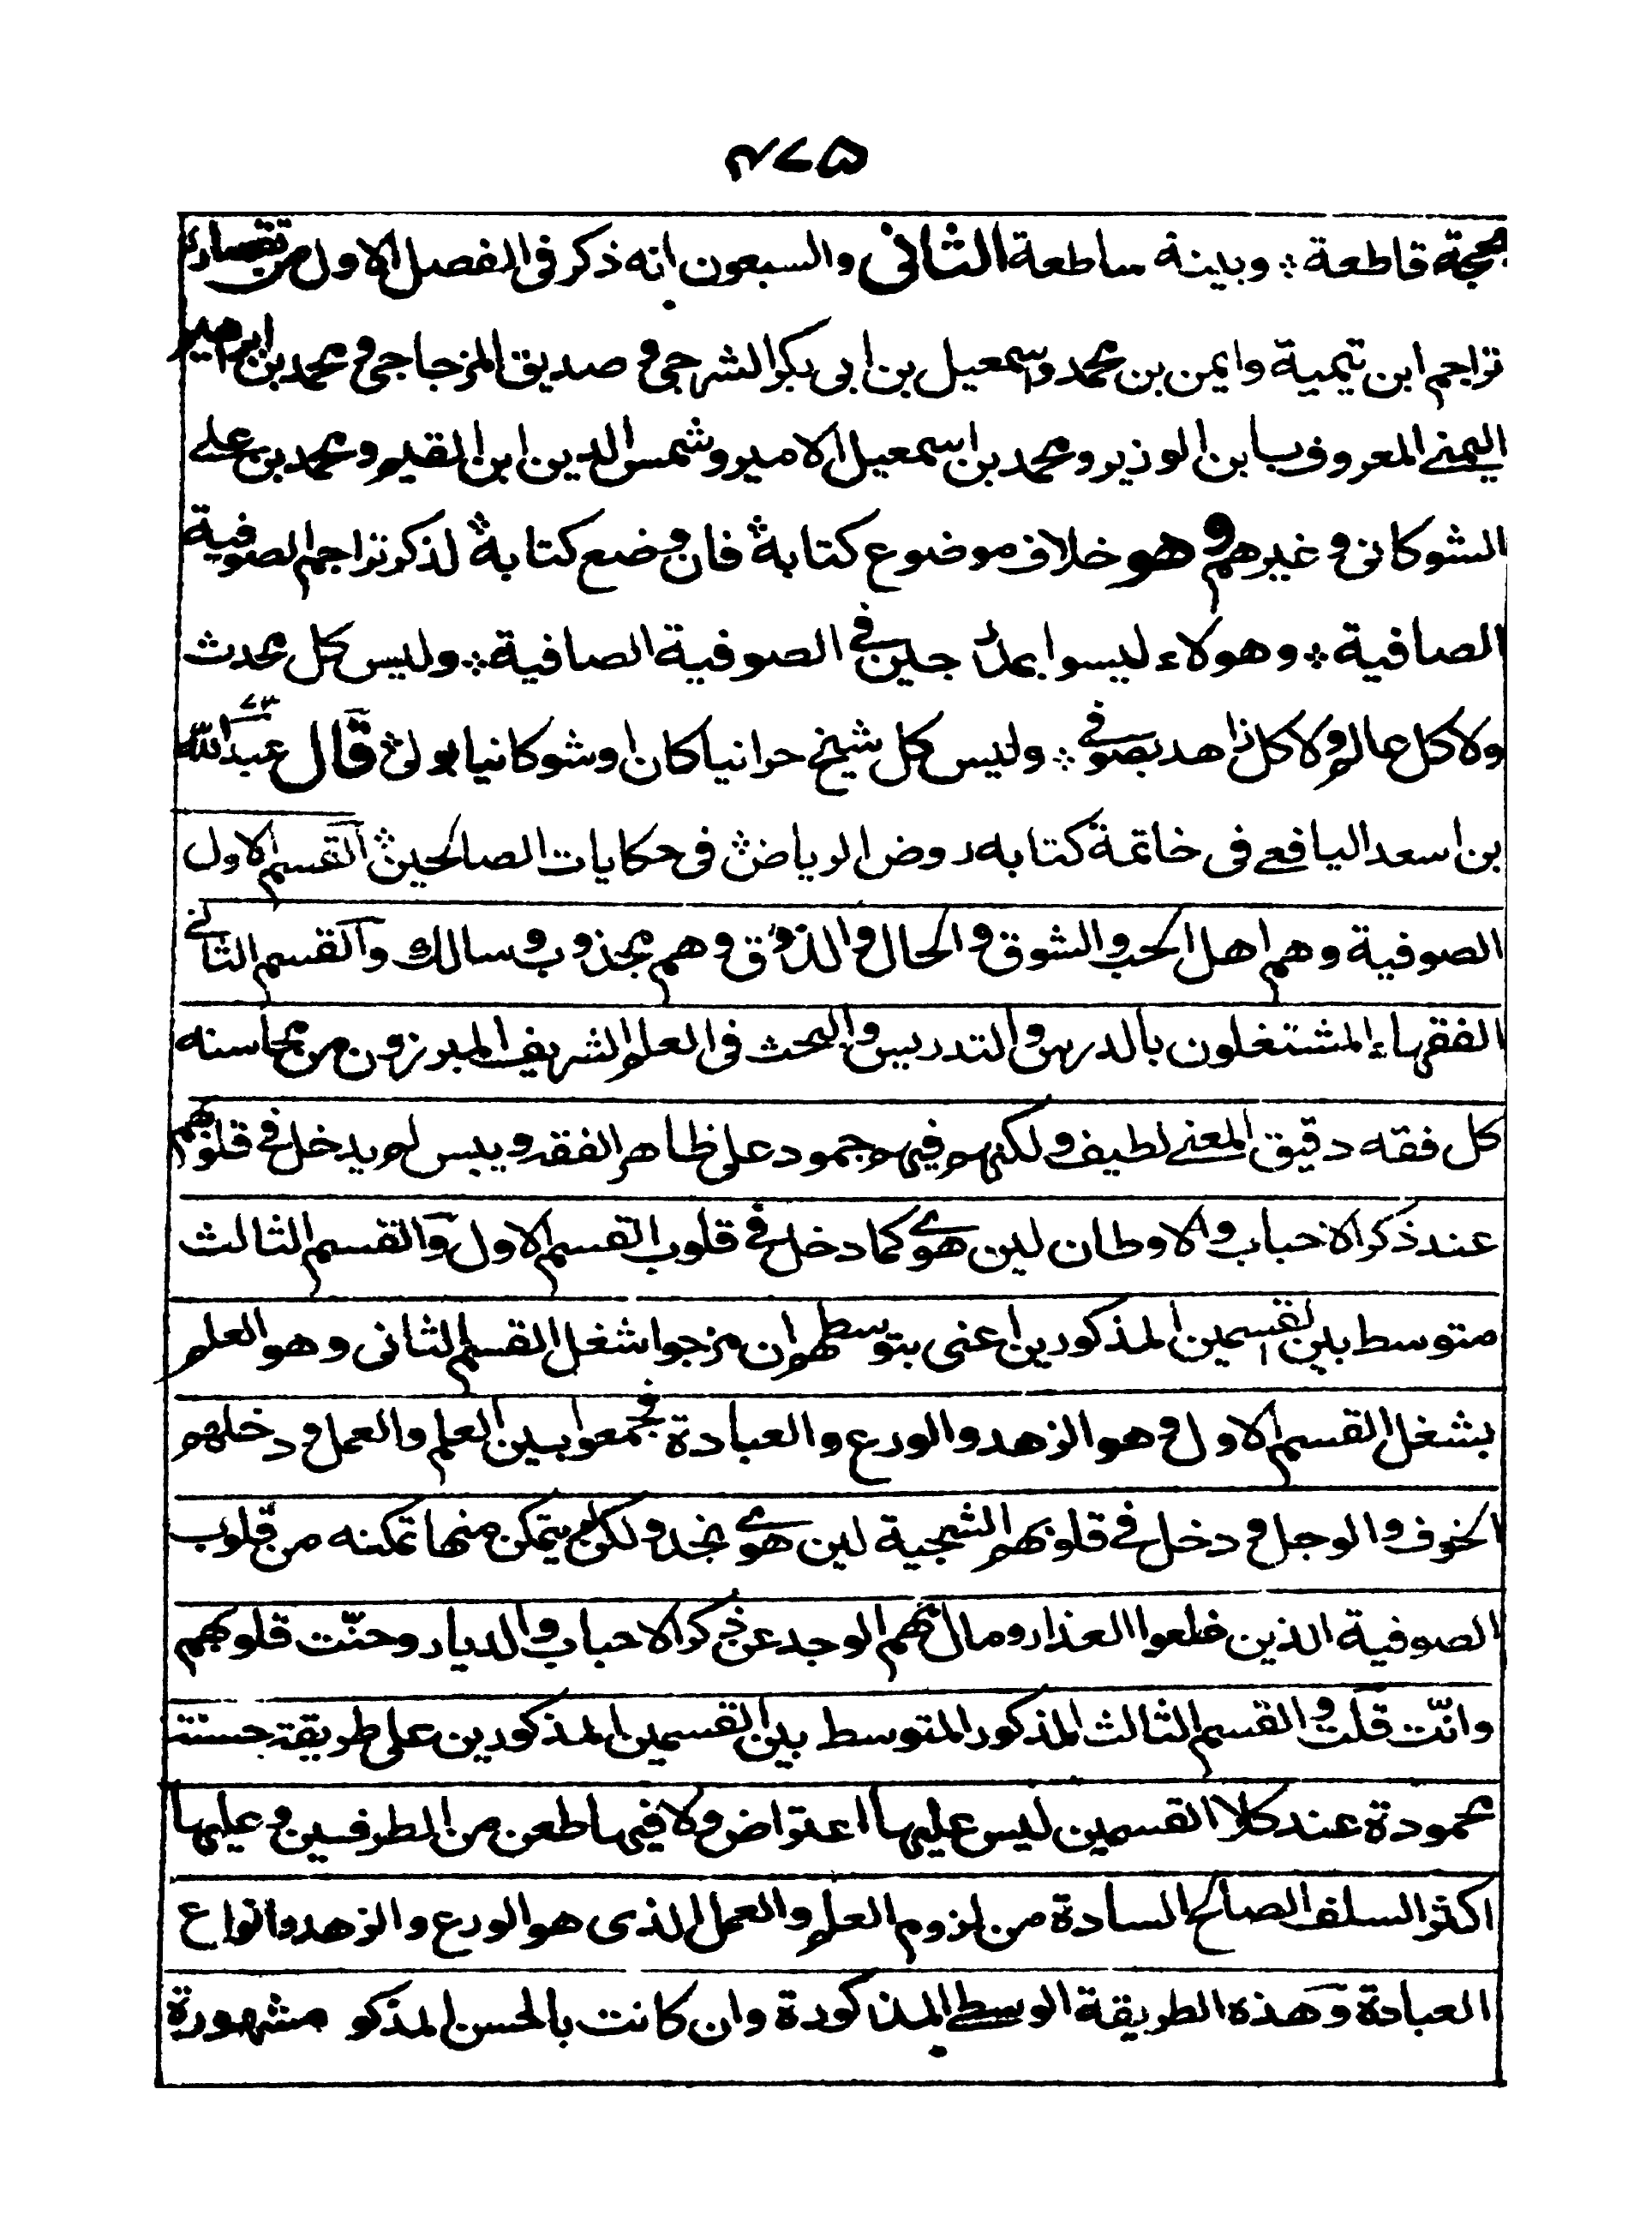 ۴۷۵
بحجة قاطعة ؞ وبينة ساطعة الثانى والسبعون انه ذكر فى الفصل الاول من تقصاره
تراجم ابن تيمية وايمن بن محمد واسمعيل بن ابى بكر الشرجى و صديق المزجاجى و محمد بن ابراهيم
اليمنے المعروف بابن الوزير ومحمد بن اسمعيل الامير وشمس الدين ابن القيم ومحمد بن علے
الشوكانى و غيرهم و هو خلاف موضوع كتابة فان وضع كتابة لذكر تراجم الصوفية
الصافية ؞ وهولاء ليسوا بمندرجين فے الصوفية الصافية ؞ وليس كل محدث
ولا كل عالم ولا كل زاهد بصوفے ؞ وليس كل شيخ حرانيا كان اوشوكانيا بولى قال عبد الله ۷۳
بن اسعد اليافعے فى خاتمة كتابه روض الرياض فى حكايات الصالحين القسم الاول
الصوفية وهم اهل الحب والشوق والحال والذوق وهم مجذوب وسالك والقسم الثانے
الفقهاء المشتغلون بالدرس والتدريس والبحث فى العلم الشريف المبرزون من محاسنه
كل فقه دقيق المعنے لطيف ولكنهم فيهم جمود على ظاهر الفقه ويبس لم يدخل فے قلوبهم
عند ذكر الاحباب والاوطان لين هوے كما دخل فے قلوب القسم الاول والقسم الثالث
متوسط بين القسمين المذكورين اعنى بتوسطهم ان مزجوا شغل القسم الثانى وهو العلم
بشغل القسم الاول وهو الزهد والورع والعبادة فجمعوا بين العلم والعمل و دخلهم
الخوف والوجل و دخل فے قلوبهم الشجية لين هوے نجد ولكن لم يتمكن منها تمكنه من قلوب
الصوفية الذين خلعوا العذار ومال بهم الوجد عن ذكر الاحباب والديار وحنّت قلوبهم
وانّت قلت والقسم الثالث المذكور المتوسط بين القسمين المذكورين على طريقة حسنة
محمودة عند كلا القسمين ليس عليها اعتراض ولا فيها طعن من الطرفين و عليها
اكثر السلف الصالح السادة من لزوم العلم والعمل الذى هو الورع والزهد وانواع
العبادة وهذه الطريقة الوسطے المذكورة وان كانت بالحسن المذكو مشهورة